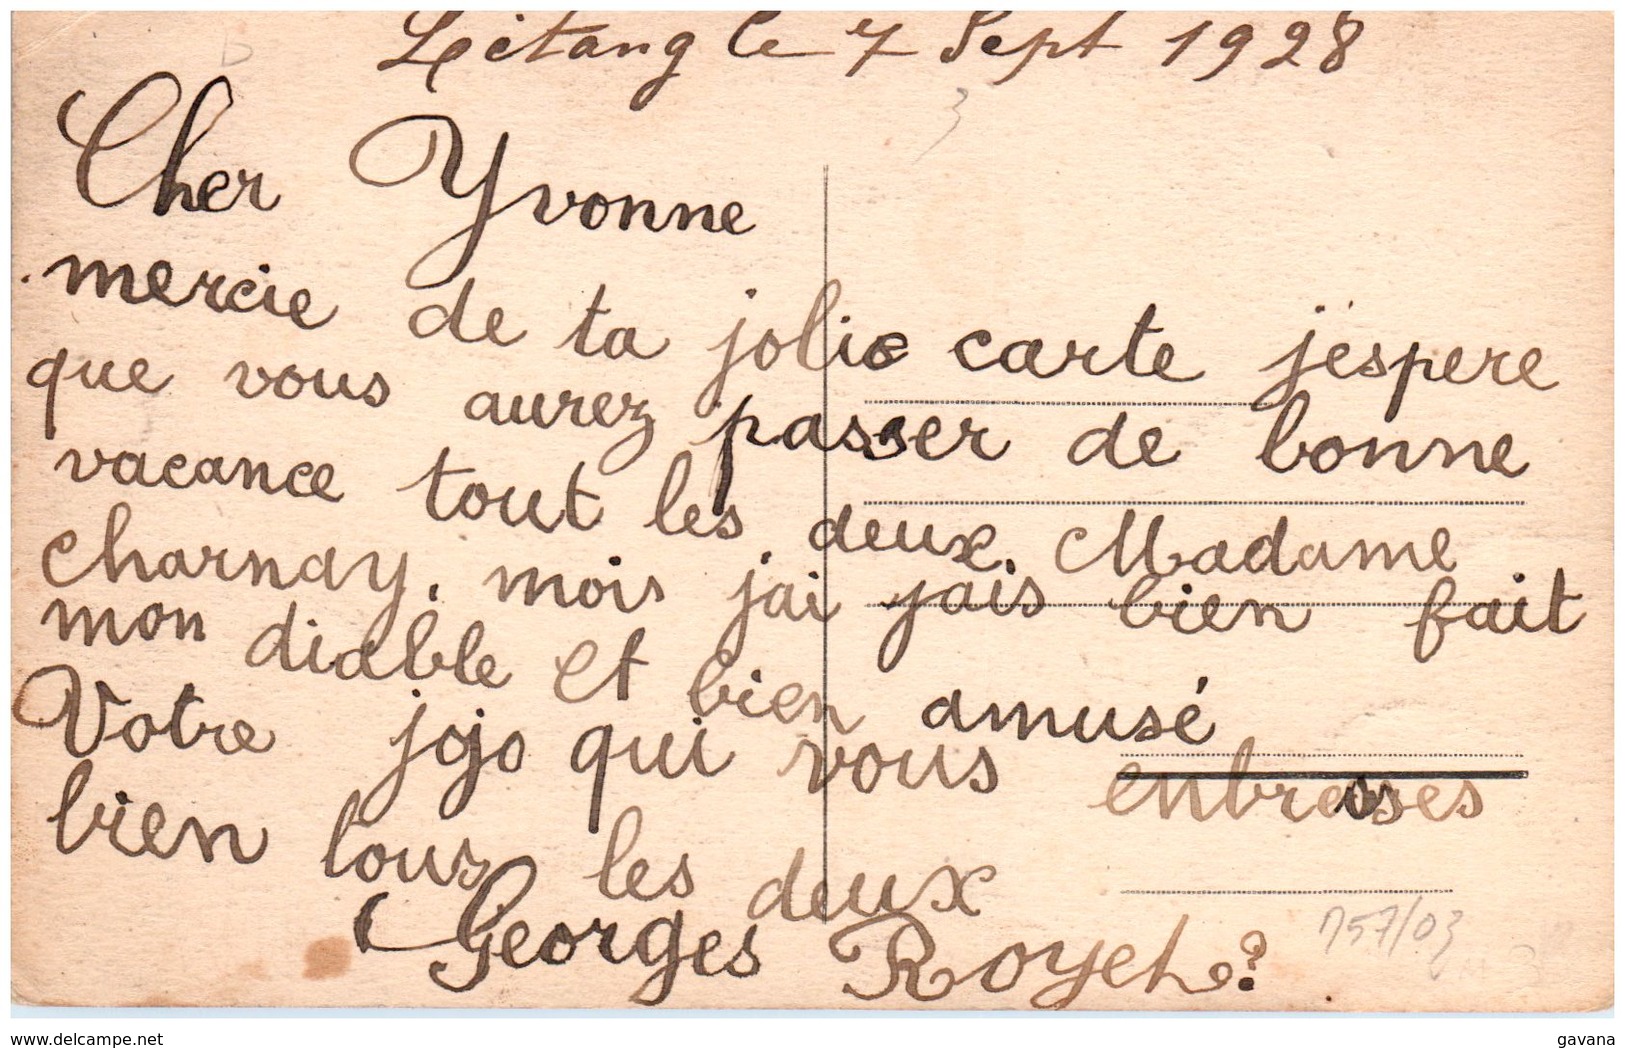 Letang le 7 Sept 1928
Cher Yvonne
mercie de ta jolie carte j'espere
que vous aurez passer de bonne
vacance tout les deux Madame
charnay. mois jai jais bien fait
mon diable et bien amusé
Votre jojo qui vous enbrasses
bien tous les deux
Georges Royet
757/03
gavana